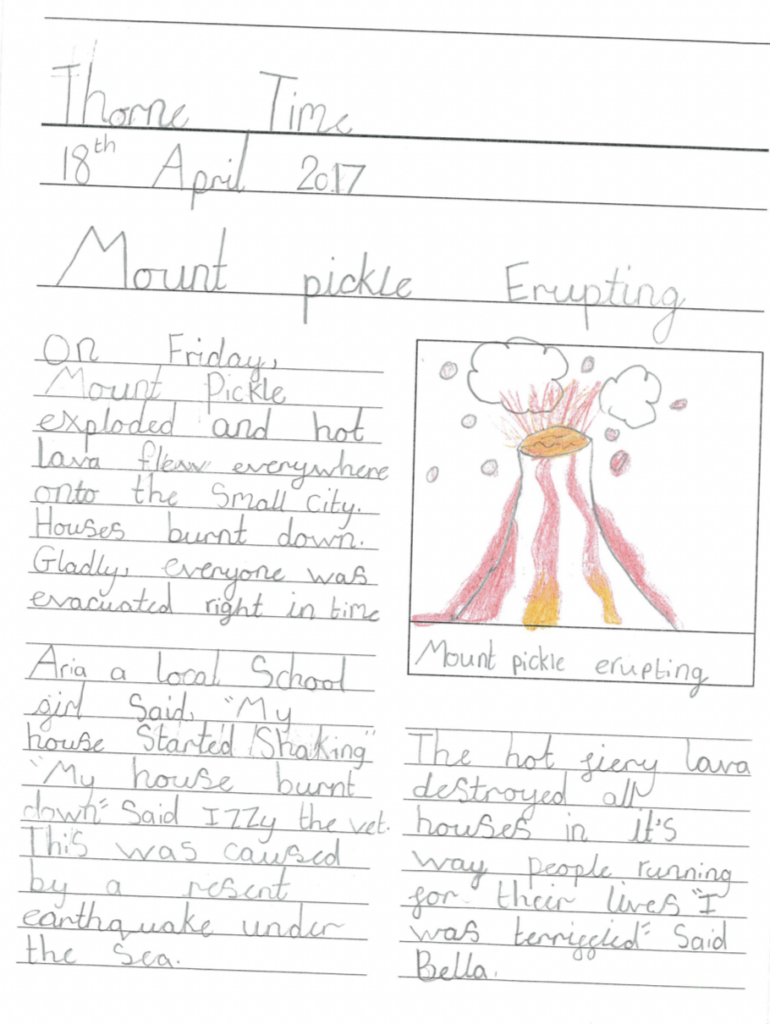 Thorne Time
18th April 2017
Mount pickle Erupting
On Friday,
Mount Pickle
exploded and hot
lava flew everywhere
onto the small city.
Houses burnt down.
Gladly, everyone was
evacuated right in time
Aria a local School
girl Said, "My
house Started Shaking"
"My house burnt
down" Said Izzy the vet.
This was caused
by a resent
earthquake under
the Sea.
Mount pickle erupting
The hot fiery lava
destroyed all
houses in it's
way people running
for their lives "I
was terriffled" Said
Bella.